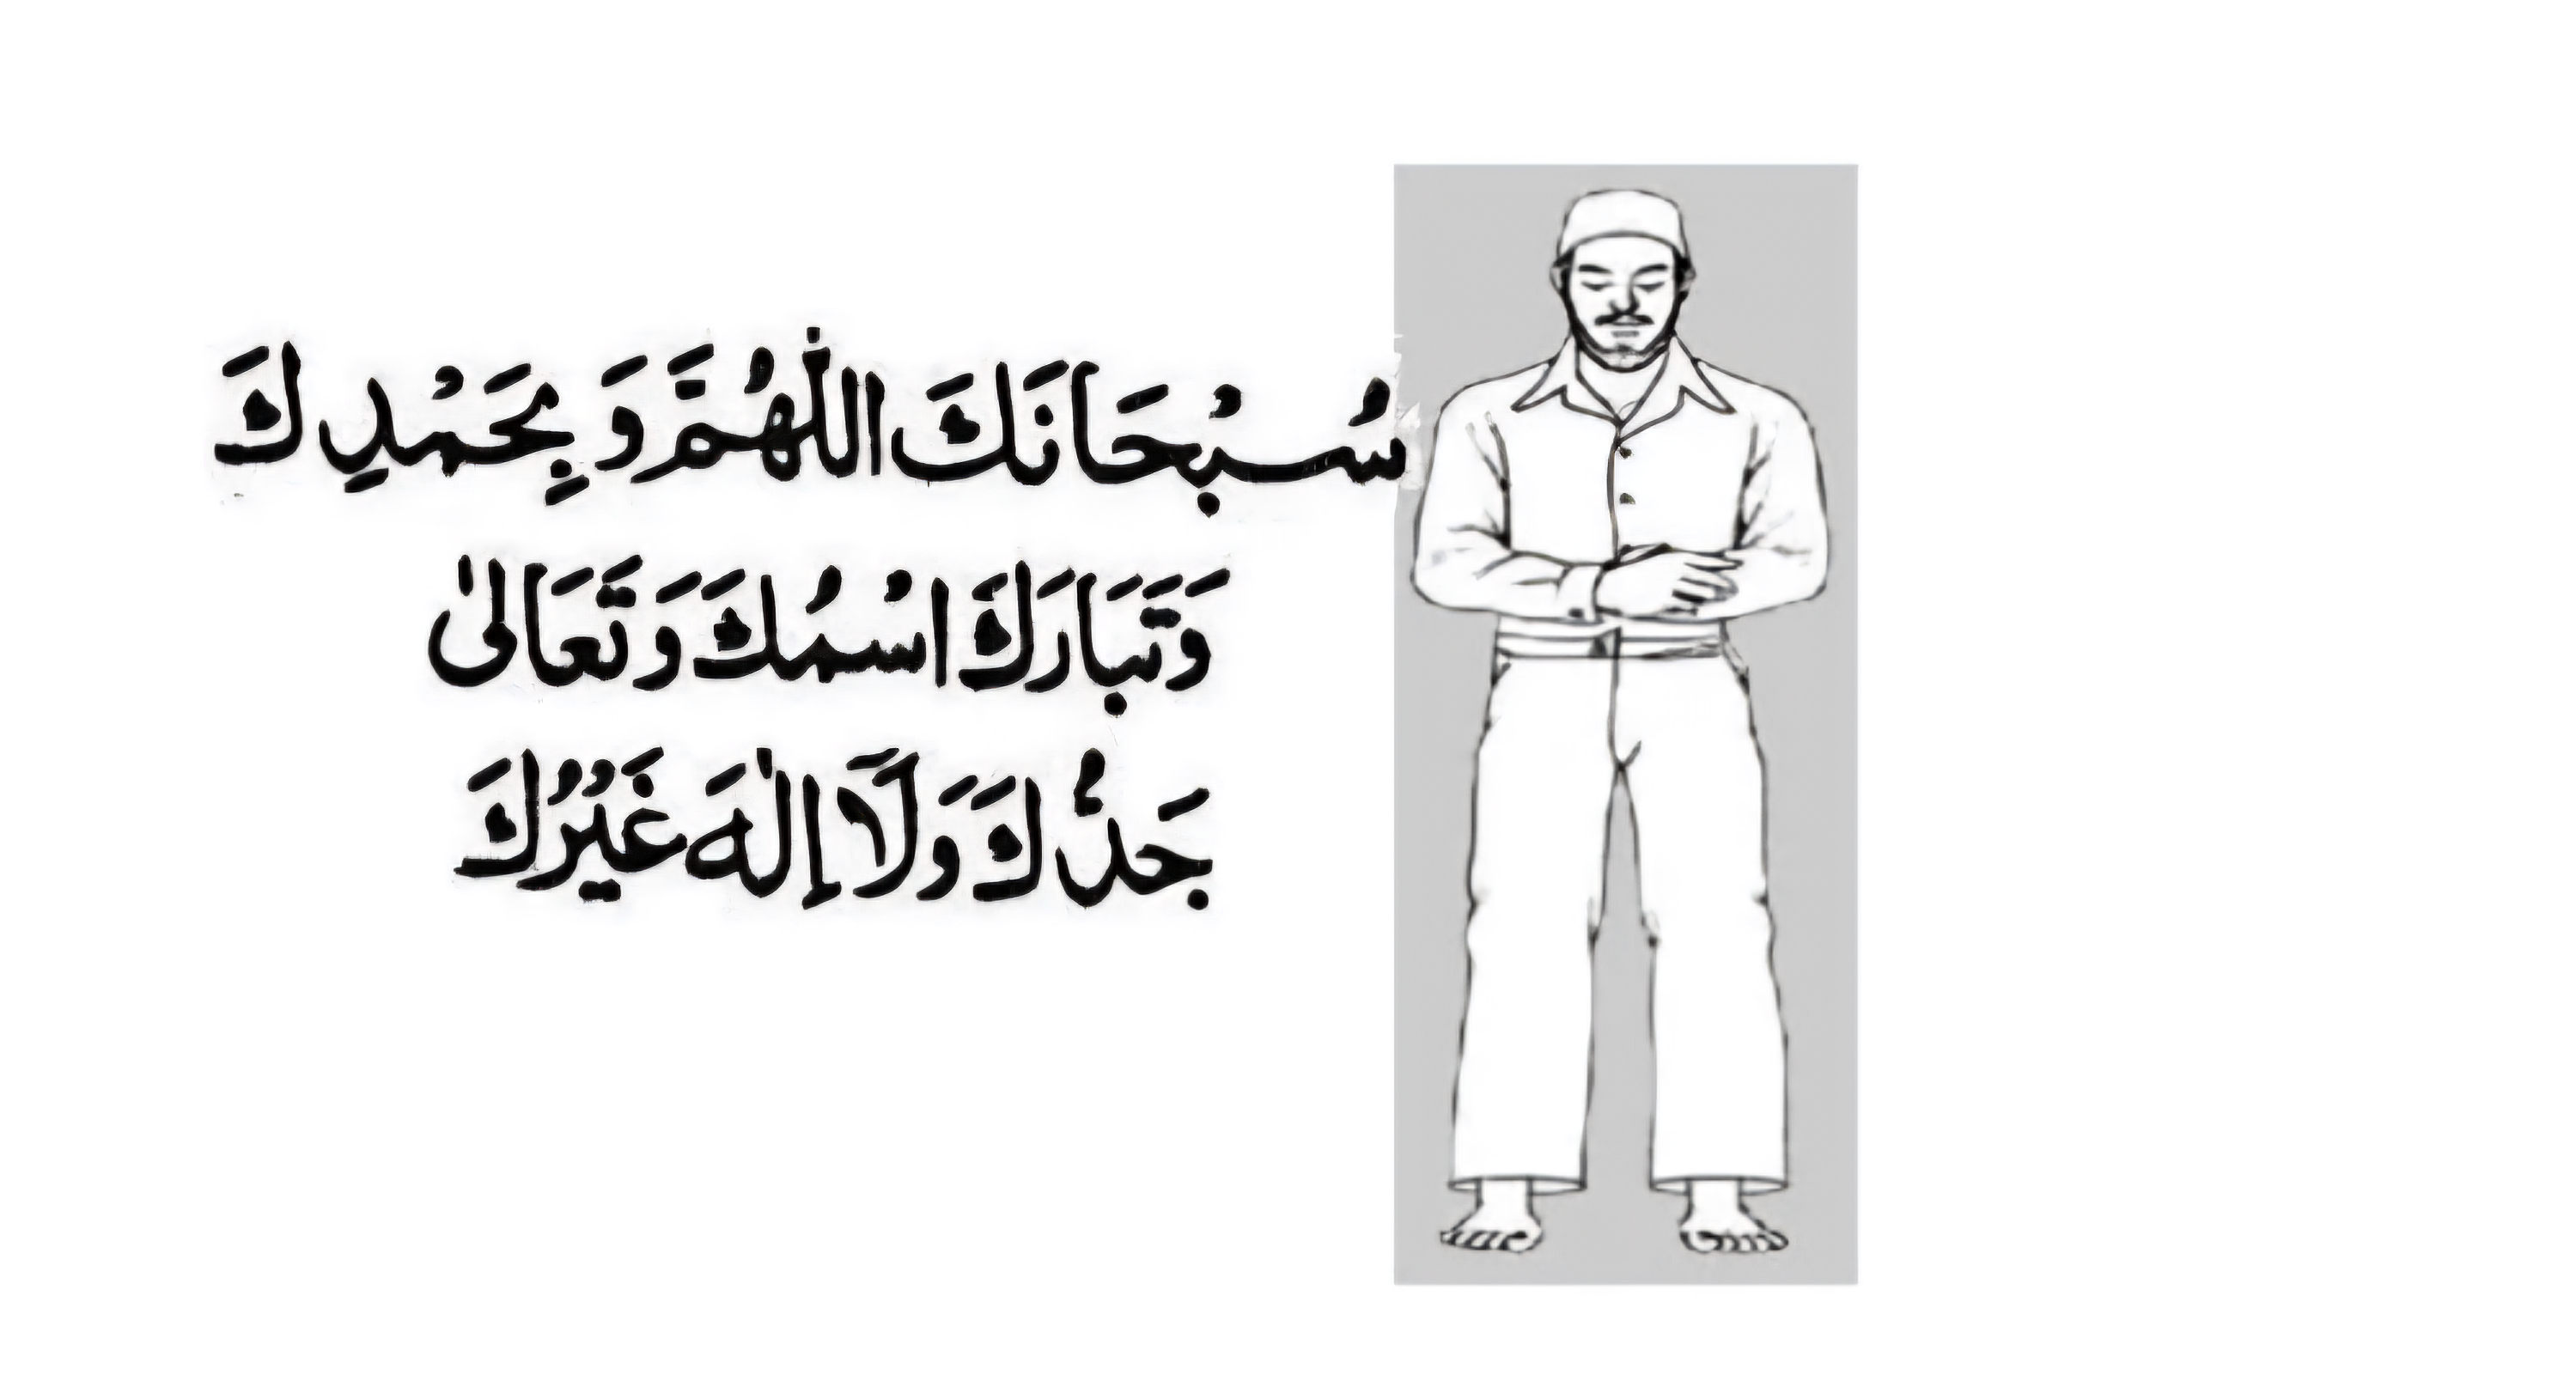 سُبْحَانَكَ اللّٰهُمَّ وَ بِحَمْدِكَ
وَتَبَارَكَ اسْمُكَ وَتَعَالٰى
جَدُّكَ وَلَآ إِلٰهَ غَيْرُكَ